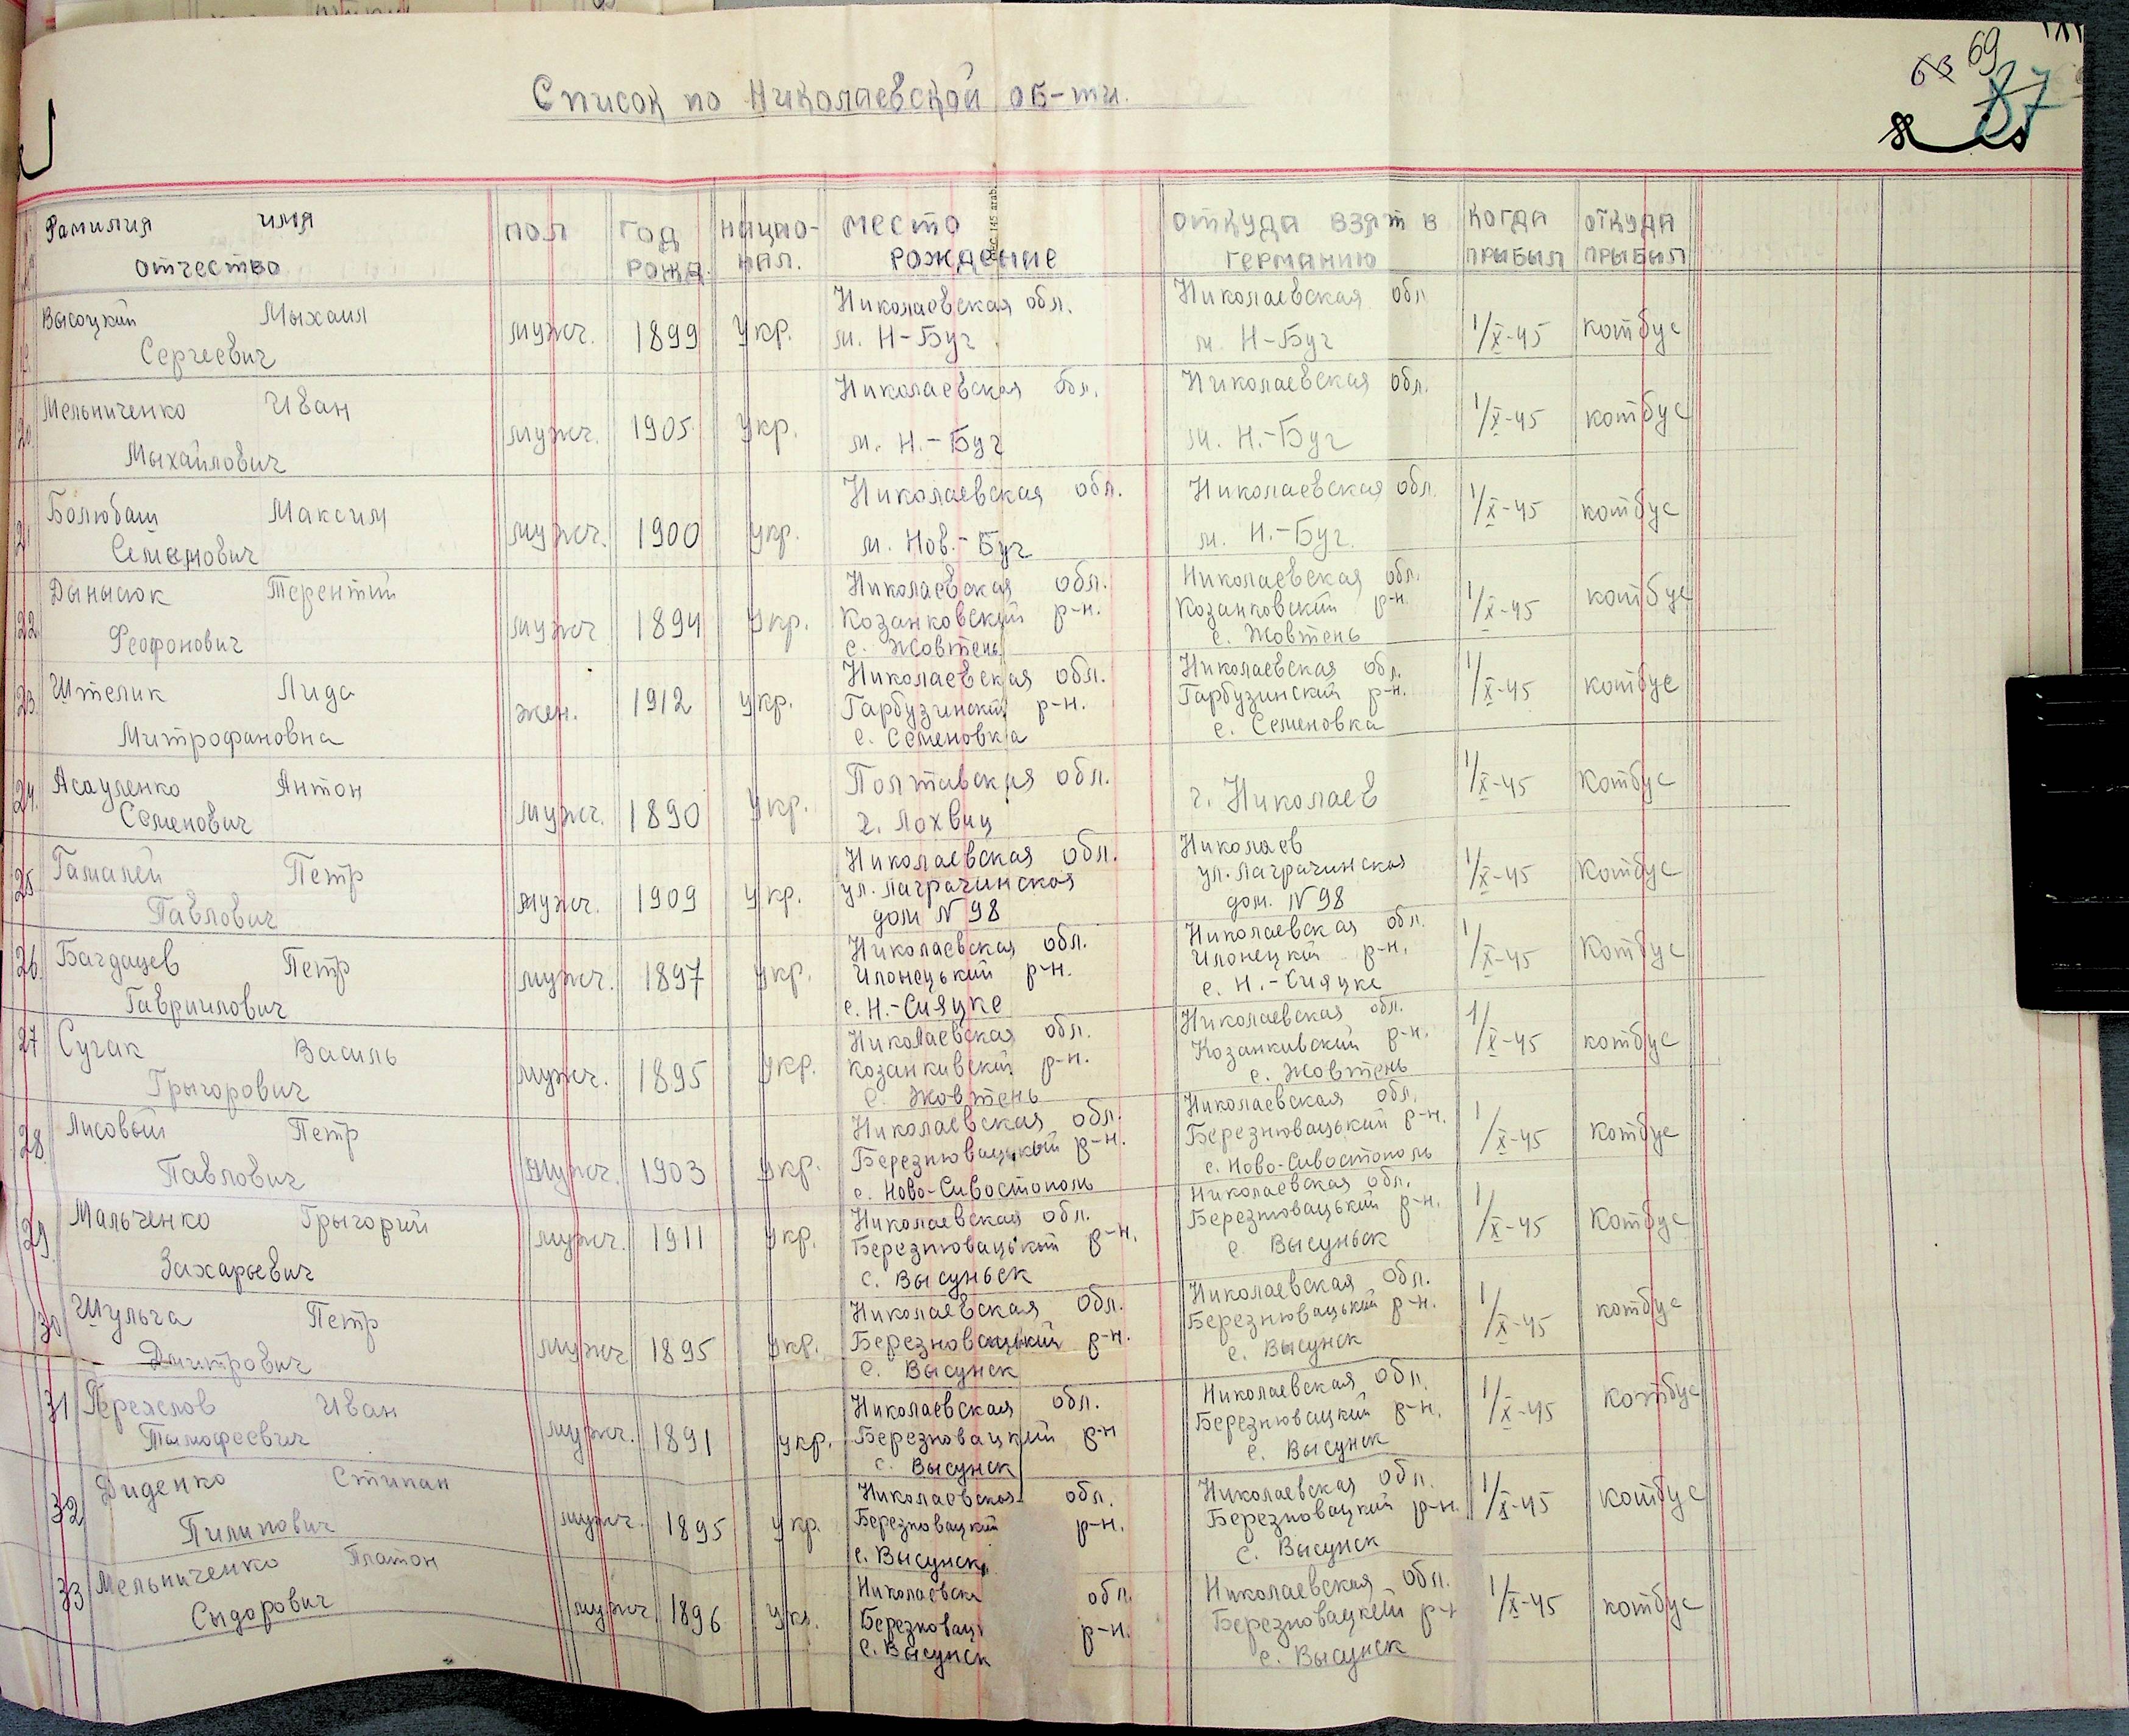 69
87
Список по Николаевской об-ти.
Фамилия имя отчество пол год рожд. нацио-нал. место рождение откуда взят в германию когда прибыл откуда прибыл
Высоцкий Мыхаил мужч. 1899 укр. Николаевская обл. Николаевская обл. 1/X-45 котбус
Сергеевич м. Н-Буг м. Н-Буг
20. Мельниченко Иван мужч. 1905 укр. Николаевская обл. Николаевская обл. 1/X-45 котбус
Мыхайлович м. Н.-Буг м. Н.-Буг
21 Болюбаш Максим мужч. 1900 укр. Николаевская обл. Николаевская обл. 1/X-45 котбус
Семенович м. Нов.-Буг м. Н.-Буг.
22 Дынысюк Терентий мужч 1894 укр. Николаевская обл. Николаевская обл. 1/X-45 котбус
Феофонович Козанковский р-н. Козанковский р-н.
с. Жовтень с. Жовтень
23. Штелик Лида жен. 1912 укр. Николаевская обл. Николаевская обл. 1/X-45 котбус
Митрофановна Гарбузинский р-н. Гарбузинский р-н.
с. Семеновка с. Семеновка
24. Асауленко Антон мужч. 1890 укр. Полтавская обл. г. Николаев 1/X-45 Котбус
Семенович г. Лохвиц
25 Гамалей Петр мужч. 1909 укр. Николаевская обл. Николаев 1/X-45 Котбус
Павлович ул. Лаграчинская ул. Лаграчинская
дом N 98 дом. N 98
26. Багдацев Петр мужч. 1897 укр. Николаевская обл. Николаевская обл. 1/X-45 Котбус
Гавриилович Илонецький р-н. Илонецкий р-н.
с. Н.-Сияцке с. Н.-Сияцке
27 Сугак Василь мужч. 1895 укр. Николаевская обл. Николаевская обл. 1/X-45 котбус
Грыгорович козанкивский р-н. Козанкивский р-н.
с. Жовтень с. Жовтень
28. Лисовый Петр мужч. 1903 укр. Николаевская обл. Николаевская обл. 1/X-45 Котбус
Павлович Березнювацькый р-н. Березнювацький р-н.
с. Ново-Сивостополь с. Ново-Сивостополь
29. Мальченко Грыгорий мужч. 1911 укр. Николаевская обл. Николаевская обл. 1/X-45 Котбус
Захарьевич Березнювацький р-н. Березнювацький р-н.
с. Высуньск с. Высуньск
30 Шульга Петр мужч 1895 укр. Николаевская обл. Николаевская обл. 1/X-45 котбус
Дмитрович Березновацький р-н. Березнювацький р-н.
с. Высунск с. Высунск
31 Иван мужч. 1891 укр. Николаевская обл. Николаевская обл. 1/X-45 котбус
Тымофеевич Березновацкий р-н Березнювацкий р-н.
с. Высунск с. Высунск
32 Диденко Стипан мужч. 1895 укр. Николаевская обл. Николаевская обл. 1/X-45 котбус
Пилипович Березновацкий р-н. Березновацкий р-н.
с. Высунск с. Высунск
33 Мельниченко Платон мужч 1896 укр. Николаевска обл. Николаевская обл. 1/X-45 котбус
Сыдорович Березновац р-н. Березновацкий р-н
с. Высунск с. Высунск